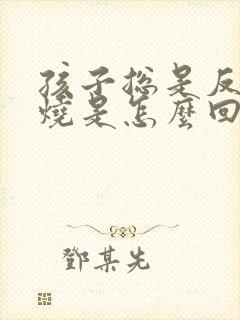 孩子總是反
燒是怎麼回
鄧某先